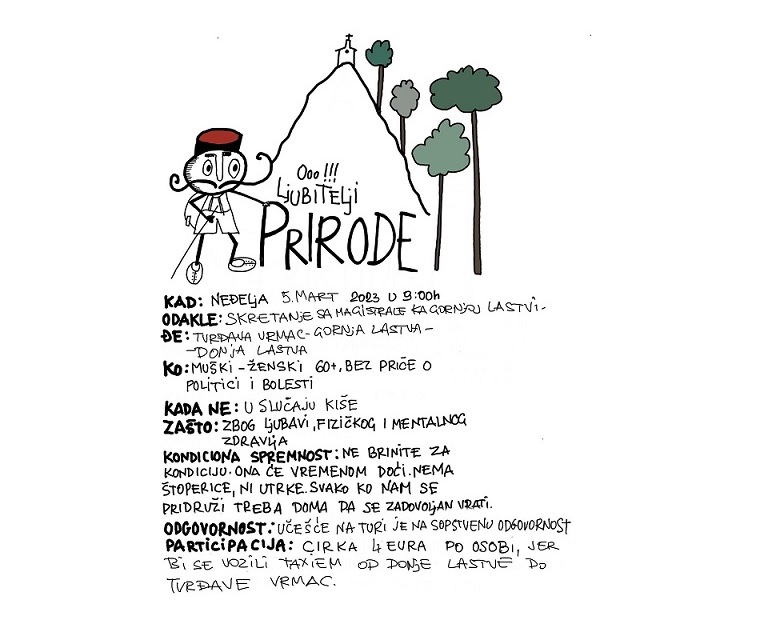 Ooo !!!
LJUBITELJI
PRIRODE
KAD: NEĐELJA 5. MART 2023 U 9:00h
ODAKLE: SKRETANJE SA MAGISTRALE KA GORNJOJ LASTVI-
ĐE: TVRĐAVA VRMAC-GORNJA LASTVA-
-DONJA LASTVA
KO: MUŠKI-ŽENSKI 60+, BEZ PRIČE O
POLITICI I BOLESTI
KADA NE: U SLUČAJU KIŠE
ZAŠTO: ZBOG LJUBAVI, FIZIČKOG I MENTALNOG
ZDRAVLJA
KONDICIONA SPREMNOST: NE BRINITE ZA
KONDICIJU. ONA ĆE VREMENOM DOĆI. NEMA
ŠTOPERICE, NI UTRKE. SVAKO KO NAM SE
PRIDRUŽI TREBA DOMA DA SE ZADOVOLJAN VRATI.
ODGOVORNOST: UČEŠĆE NA TURI JE NA SOPSTVENU ODGOVORNOST
PARTICIPACIJA: CIRKA 4 EURA PO OSOBI, JER
BI SE VOZILI TAXIEM OD DONJE LASTVE DO
TVRĐAVE VRMAC.